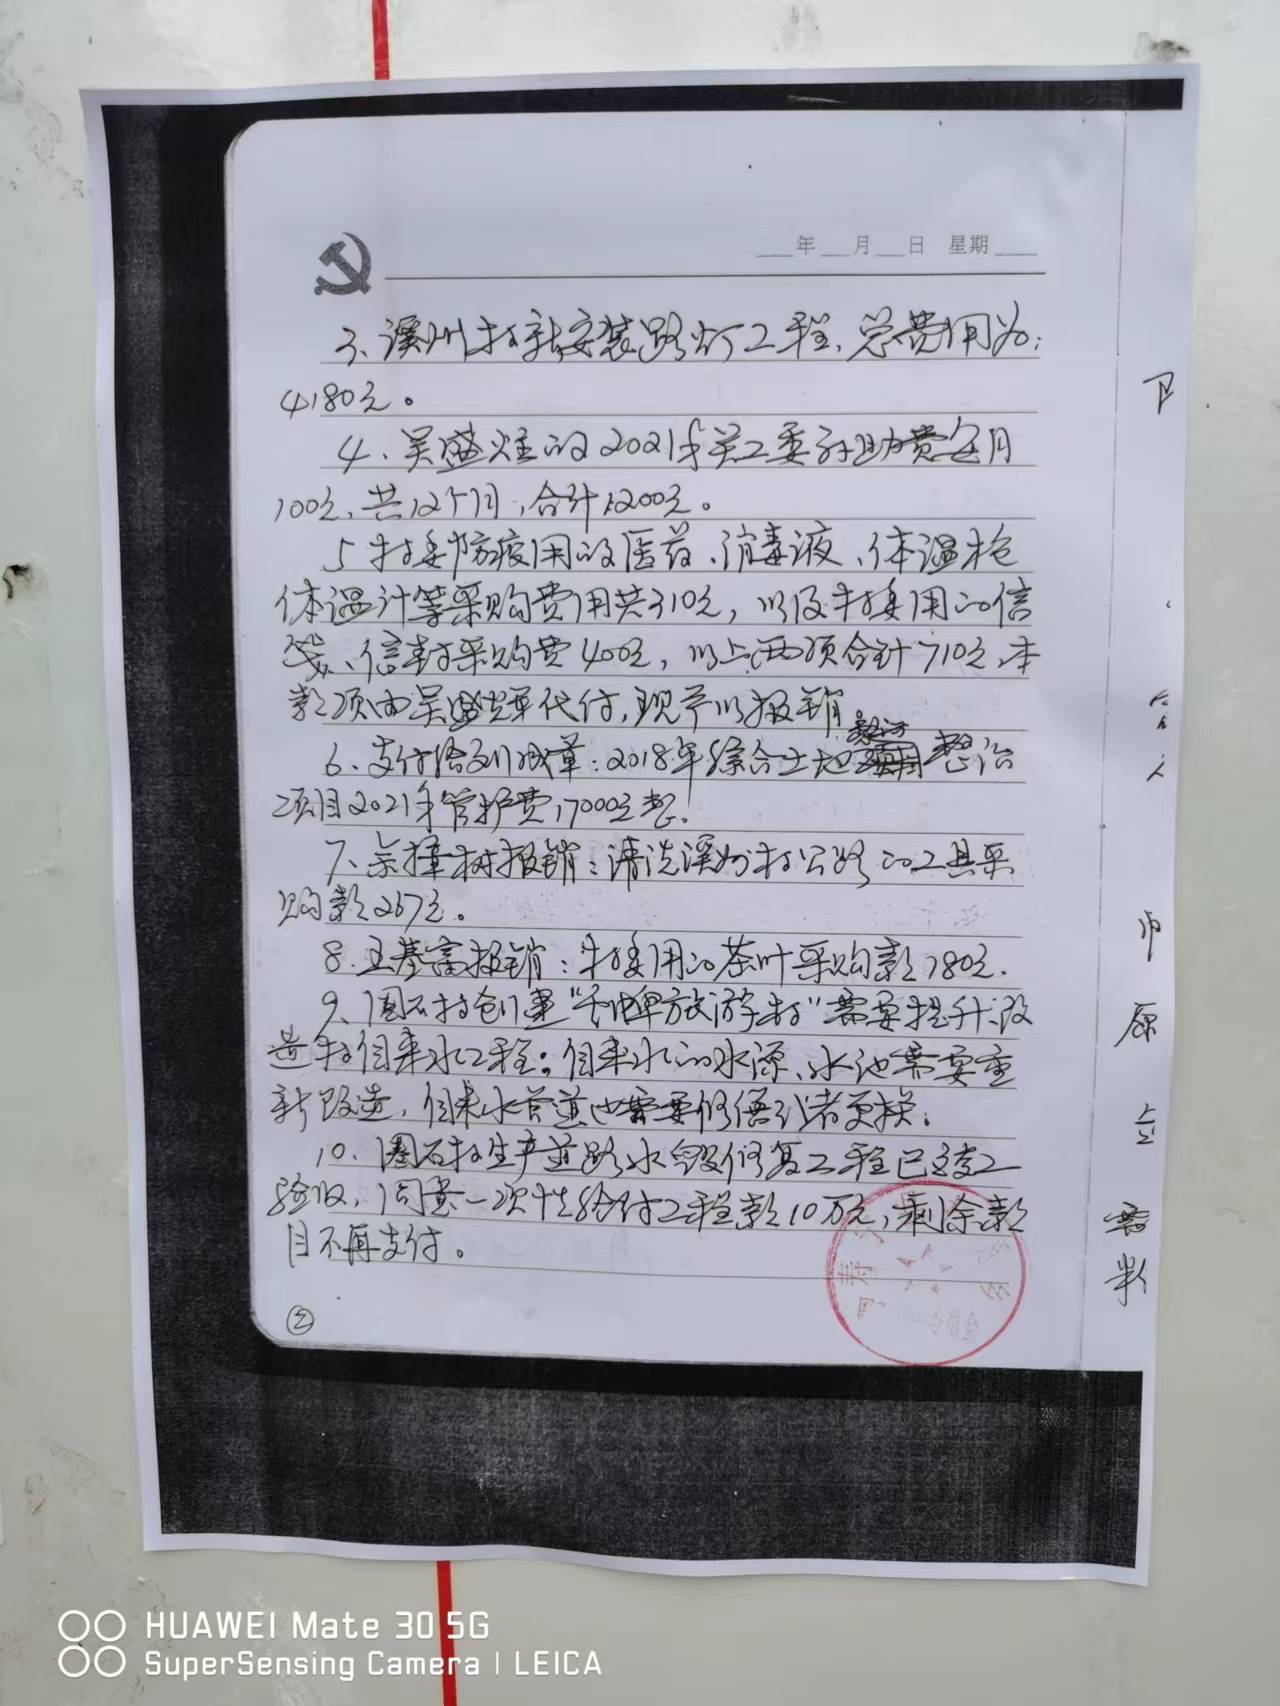 年 月 日 星期
3、溪州村新安装路灯工程,总费用为:
4180元。
4、吴盛炷的2021年关工委补助费每月
100元,共12个月,合计1200元。
5 村委防疫用的医药、消毒液、体温枪
体温计等采购费用共310元,以及村委用的信
笺、信封采购费400元,以上两项合计710元,本
款项由吴盛 代付,现予以报销。
6、支付给刘 草:2018年综合土地 整治
项目2021年管护费17000元整。
7、余 树报销:清洗溪州村公路的工具采
购款267元。
8.王基富报销:村委用的茶叶采购款180元.
9、圈石村创建"金牌旅游村"需要提升改
造村自来水工程。自来水的水源、水池需要重
新改造,自来水管道也需要修缮或者更换。
10、圈石村生产道路水毁修复工程已竣工
验收,同意一次性给付工程款10万元,剩余款
目不再支付。
②
HUAWEI Mate 30 5G
SuperSensing Camera | LEICA